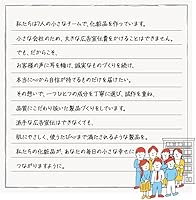 私たちは7人の小さなチームで、化粧品を作っています。
小さな会社のため、大きな広告宣伝費をかけることはできません。
でも、だからこそ、
お客様の声に耳を傾け、誠実なものづくりを続け、
本当に心から自信が持てるものだけを届けたい。
その想いで、一つひとつの成分を丁寧に選び、試作を重ね、
品質にこだわり抜いた製品づくりをしています。
派手な広告宣伝はできなくても、
肌にやさしく、使うたび心まで満たされるような製品を。
私たちの化粧品が、あなたの毎日の小さな幸せに
つながりますように。